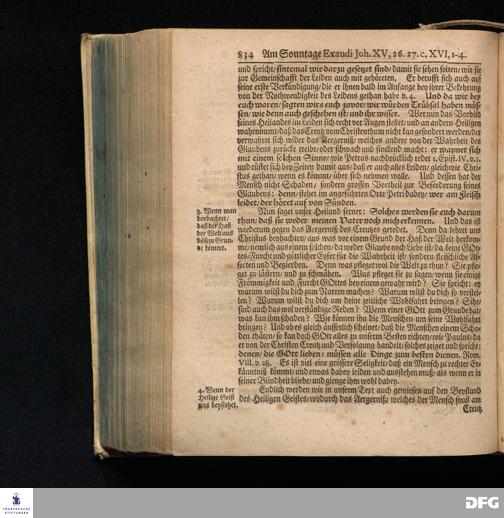 834 Am Sonntage Exaudi Joh. XV, 26. 27. c. XVI, 1-4.
und spricht/ sintemal wir darzu gesetzet sind/ damit sie sehen solten/ wie sie
zur Gemeinschafft der Leiden auch mit gehöreten. Er berufft sich auch auf
seine erste Verkündigung/ die er ihnen bald im Anfange bey ihrer Bekehrung
von der Nothwendigkeit des Leidens gethan habe v. 4. Und da wir bey
euch waren/ sagten wirs euch zuvor/ wir würden Trübsal haben müs-
sen/ wie denn auch geschehen ist/ und ihr wisset. Wer nun das Vorbild
seines Heilandes im Leiden sich recht vor Augen stellet/ und an andern Heiligen
wahrnimmt/ daß das Creutz vom Christenthum nicht kan gesondert werden/ der
verwahret sich wider das Aergerniß/ welches andere von der Wahrheit des
Glaubens zurücke treibt/ oder schwach und sinckend macht: er wapnet sich
mit einem solchen Sinne/ wie Petrus nachdrücklich redet 1. Epist. IV. v. 1.
und rüstet sich bey Zeiten damit aus/ daß er auch alles Leiden/ gleichwie Chri-
stus gethan/ wenn es kömmt/ über sich nehmen wolle. Und dessen hat der
Mensch nicht Schaden/ sondern grossen Vortheil zur Beförderung seines
Glaubens: denn/ stehet im angeführten Orte Petri dabey/ wer am Fleisch
leidet/ der höret auf von Sünden.
3. Wenn man
beobachtet/
daß der Haß
der Welt aus
bösem Grun-
de kömmt.
Nun saget unser Heiland ferner: Solches werden sie euch darum
thun/ daß sie weder meinen Vater noch mich erkennen. Und das ist
wiederum gegen das Aergerniß des Creutzes geredet. Denn da lehret uns
Christus beobachten/ aus was vor einem Grund der Haß der Welt herkom-
me/ nemlich aus einem solchen/ da weder Glaube noch Liebe ist/ da keine GOt-
tes-Furcht und göttlicher Eyfer für die Wahrheit ist/ sondern fleischliche Af-
fecten und Begierden. Denn was pfleget wol die Welt zu thun? Sie pfle-
get zu lästern/ und zu schmähen. Was pfleget sie zu sagen/ wenn sie einige
Frömmigkeit und Furcht GOttes bey einem gewahr wird? Sie spricht: ey
warum wilst du dich zum Narren machen? Warum wilst du dich so verstel-
len? Warum wilst du dich um deine zeitliche Wohlfahrt bringen? Siehe/
sind auch das wol verständige Reden? Wenn einer GOtt zum Grunde hat/
was kan ihm schaden? Wie können ihn die Menschen um seine Wohlfahrt
bringen? Und ob es gleich äusserlich scheinet/ daß die Menschen einem Scha-
den thäten/ so kan doch GOtt alles zu unserm Besten richten/ wie Paulus/ da
er von der Christen Creutz und Verfolgung handelt/ solches zeiget und spricht:
denen/ die GOtt lieben/ müssen alle Dinge zum besten dienen. Rom.
VIII. v. 28. Es ist viel eine grössere Seligkeit/ daß ein Mensch zu rechter Er-
käntniß kömmt/ und etwas dabey leiden und ausstehen muß/ als wenn er in
seiner Blindheit bliebe/ und gienge ihm wohl dabey.
4. Wenn der
Heilige Geist
uns beystehet.
Endlich werden wir in unserm Text auch gewiesen auf den Beystand
des Heiligen Geistes/ wodurch das Aergerniß/ welches der Mensch sonst am
Creutz
FRANCKESCHE
STIFTUNGEN
DFG